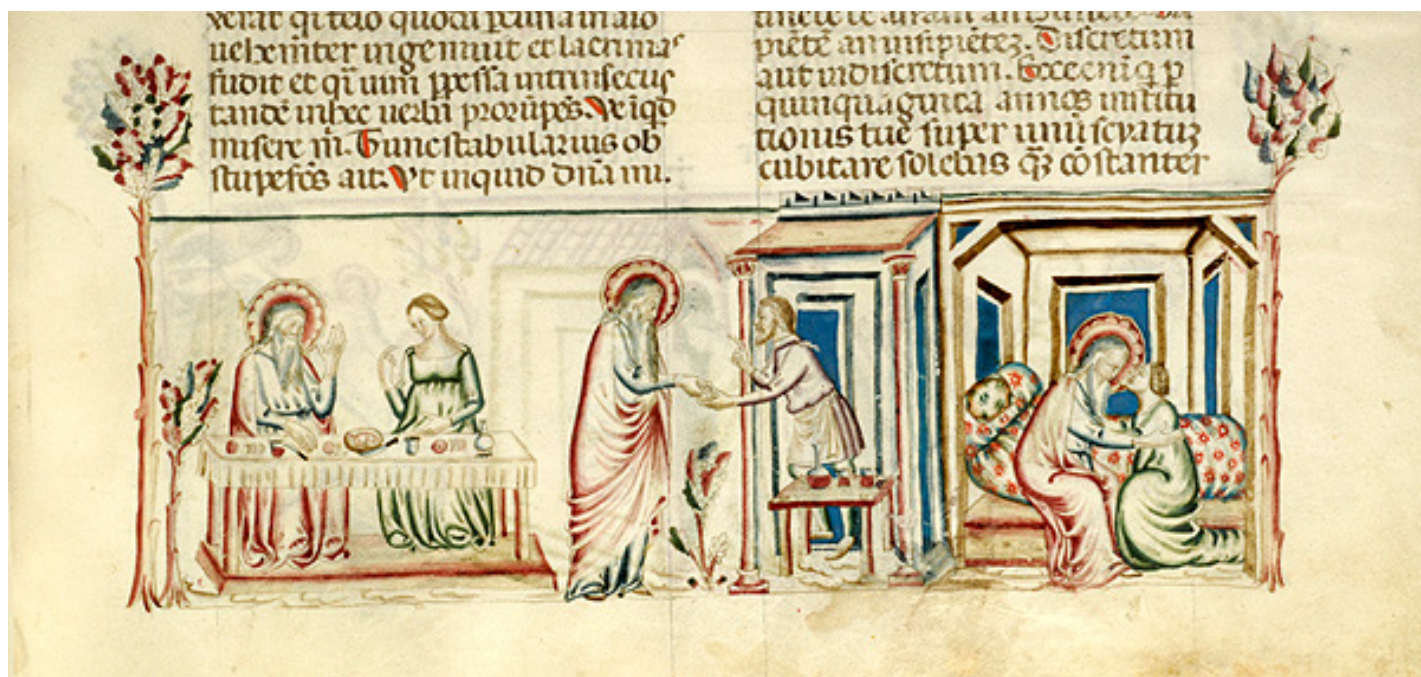 uehem̄ter ingemuit et lacrimas
fudit et qi uim p̄pessa intrinsecus
tandē inhec uerba prorūpēs. Ve iqd
misere m̄. Tunc stabularius ob
stupefc̄s ait. Vt inquid dn̄a mi.
piētē an insipiētez. Discretum
aut indiscretum. Ecce enī q p
quinquaginta annos institu
tionis tue super unū seyatuz
cubitare solebas q̄z cōstanter